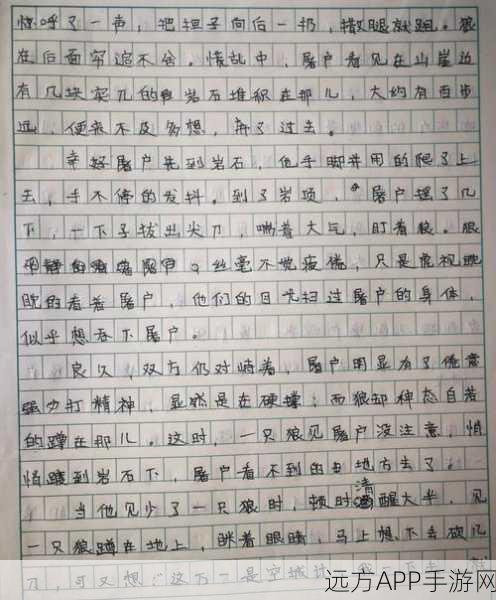 惊呼了一声，把担子向后一扔，撒腿就跑。狼
在后面穷追不舍。慌乱中，屠户看见在山崖边
有几块突兀的岩石堆积在那儿，大约有百步
远，便来不及多想，奔了过去。
幸好屠户先到岩石，他手脚并用的爬了上
去，手不停的发抖。到了岩顶，屠户摆了几
下，一下子拔出尖刀，喘着大气，盯着狼。狼
丝毫不觉疲倦，只是虎视眈
眈的看着屠户，他们的目光扫过屠户的身体，
似乎想吞下屠户。
良久，双方仍对峙着，屠户明显有了倦意
强力打精神，显然是在硬撑；而狼却神态自若
的蹲在那儿。这时，一只狼见屠户没注意，悄
悄踱到岩石下，屠户看不到的地方去了
当他见少了一只狼时，顿时清醒大半，见
一只狼蹲在地上，眯着眼睛，马上想下去砍几
刀，可又想：“这万一是空城计，我一下去，
远方APP手游网